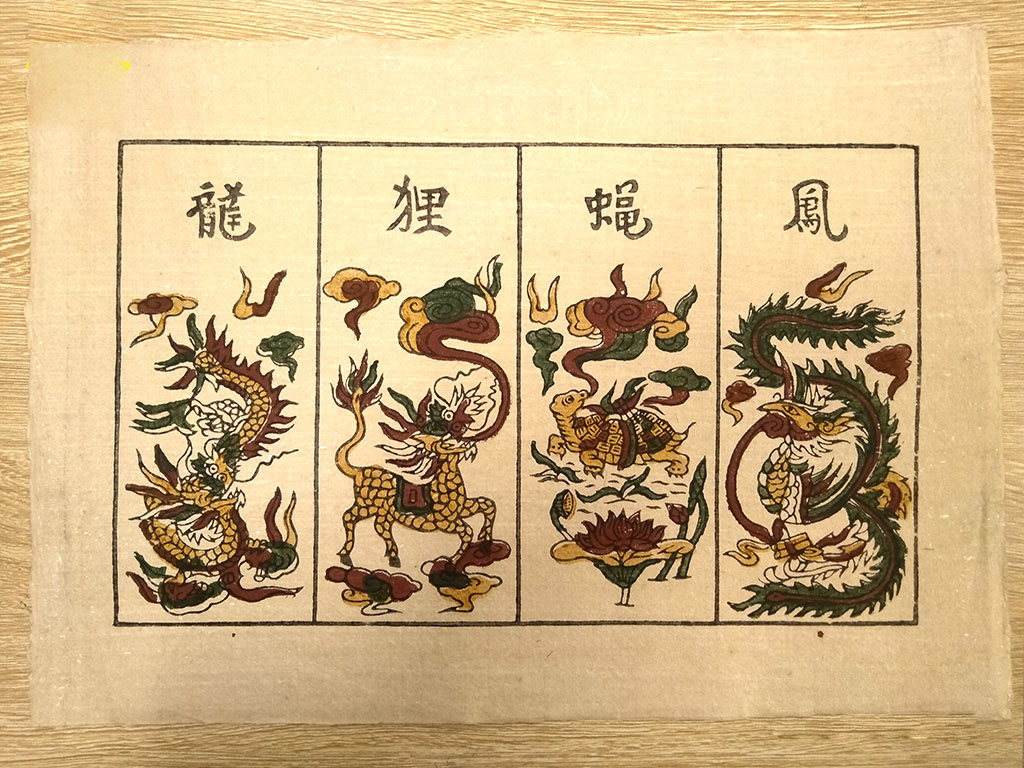 龍 狸 蝇 鳳